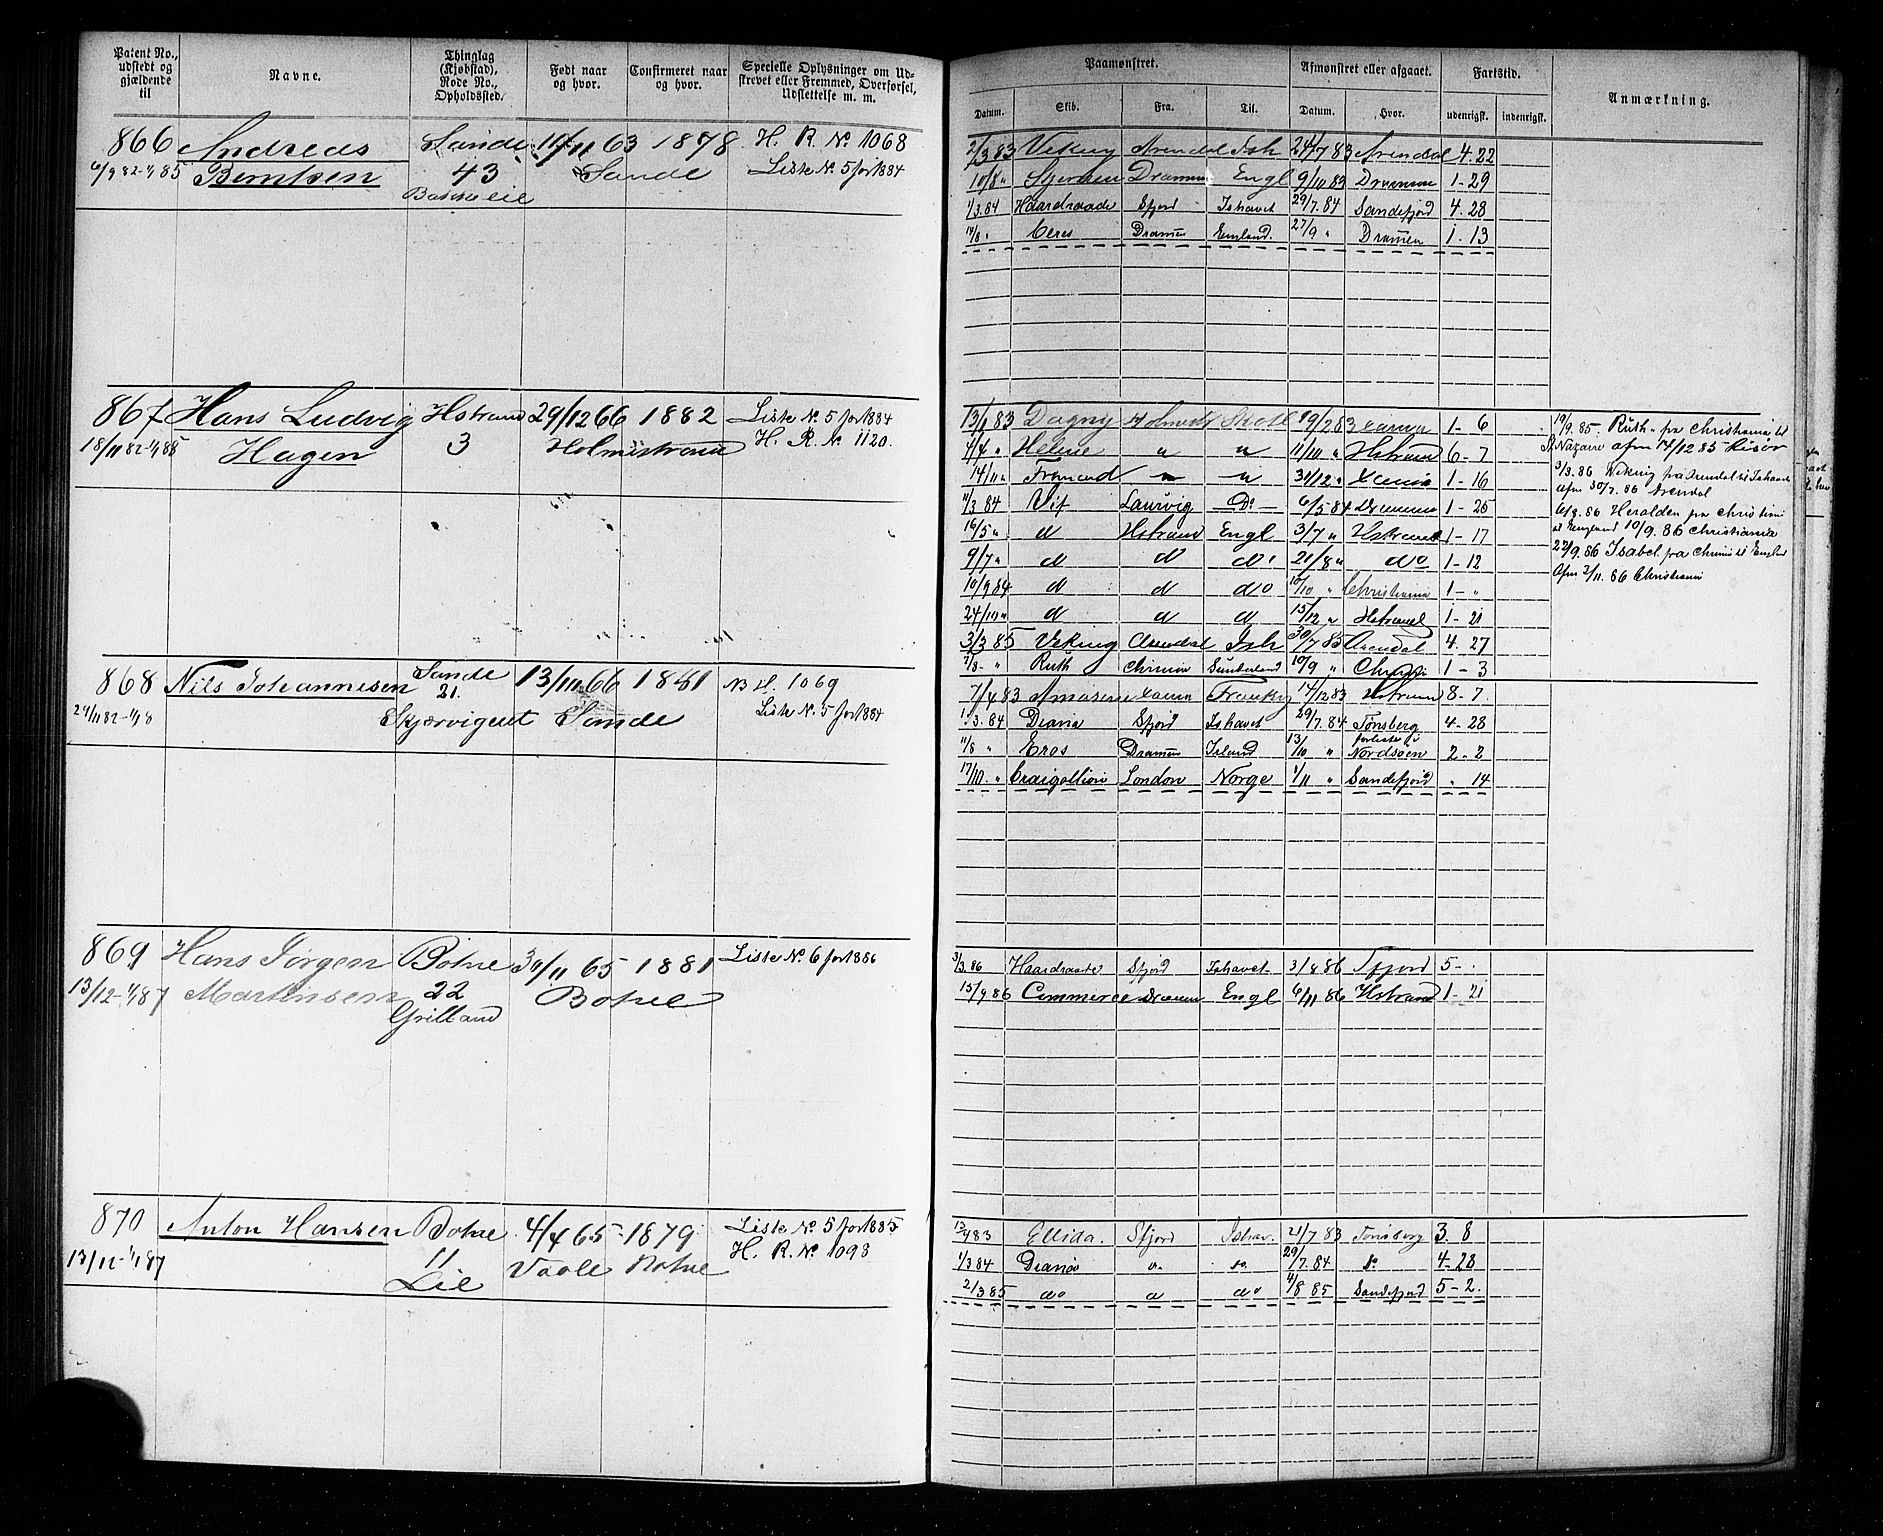 Patent No., udstedt og gjældende til
Navne.
Thinglag (Kjøbstad), Rode No., Opholdssted.
Født naar og hvor.
Confirmeret naar og hvor.
Specielle Oplysninger om Udskrevet eller Fremmed, Overførsel, Udslettelse m. m.
866 Andreas Sande 63 1878 H. R. No 1068
Berntsen 43 Sande Liste No. 5 for 1884
867 Hans Ludvig Hstrand 29/12 66 1882 Liste No. 5 for 1884
18/11 82-1/1 85 Hagen 3 Holmestrand H. R. No 1120.
868 Nils Johannesen Sande 13/11 66 1881 H. 1069
21. Liste No. 5 for 1884
Skjærvigeret Sande
869 Hans Jørgen Botne 30/11 65 1881 Liste No. 6 for 1886
13/12-1/1 87 Martinsen 22 Botne
Grilland
870 Anton Hansen Botne 4/4 65 1879 Liste No. 5 for 1885
13/12-1/1 87 11 Vaale Botne H. R. No 1093
Lie
Paamønstret.
Afmønstret eller afgaaet.
Fartstid.
Anmærkning.
Datum. Skib. Fra. Til. Datum. Hvor. udenrigsk. indenrigsk.
2/3 83 Viking Arendal Ish 24/7 83 Arendal 4. 22
10/8 " Stjernen Dramen Engl 9/10 83 Drammen 1-29
1/3. 84 Haardraade Sfjord Ishavet 29/7. 84 Sandefjord 4. 28
14/8 " Ceres Dramen 27/9 " Dramen 1. 13
13/1 83 Dagny 19/2 83 1- 6
4/4 " Helene " " 11/10 " Hstrand 6-7
14/11 " " 31/12 " 1-16
11/3 84 Vif Laurvig Do 6/5 84 Drammen 1-25
16/5 " d Hstrand Engl 3/7 " Hstrand 1-17
9/7 " d d do 21/8 " do 1-12
10/9 84 d d do 10/10 " Christiania 1- "
24/10 " d d d 15/12 " Hstrand 1-21
3/3 85 Viking Arendal Ish 30/7 85 Arendal 4. 27
Ruth Sunderland 10/9 " 1-3
19/9. 85. Ruth fra Christiania til
St Nazaire afm 14/12 85 Risør
3/3. 86 Viking fra Arendal til Ishavet
afm 30/7. 86 Arendal
Heralden fra Christiani
til England 10/9. 86 Christiania
22/9. 86 Isabel fra til England
Afm 2/11. 86 Christiania
7/4 83 14/12 83 Hstrand 8-7.
1/3. 84 Diana Sfjord Ishavet 29/7. 84 Tønsberg 4-28
11/8 " Eros Dramen Island 13/10 " forlist i Nordsøen 2-2
17/10 " Craigallion London Norge 1/11 " Sandefjord " 14
3/3. 86 Haardraade Sfjord Ishavet 3/8 86 5-
15/9 86 Commerce Drammen Engl 6/11 86 Hstrand 1-21
13/4 83 Ellida. Sfjord Ishav. 21/7 83 Tønsberg 3. 8
1/3 84 Diana " do 29/7. 84 do 4-28
2/3 85 do " do 4/8 85 Sandefjord 5-2.